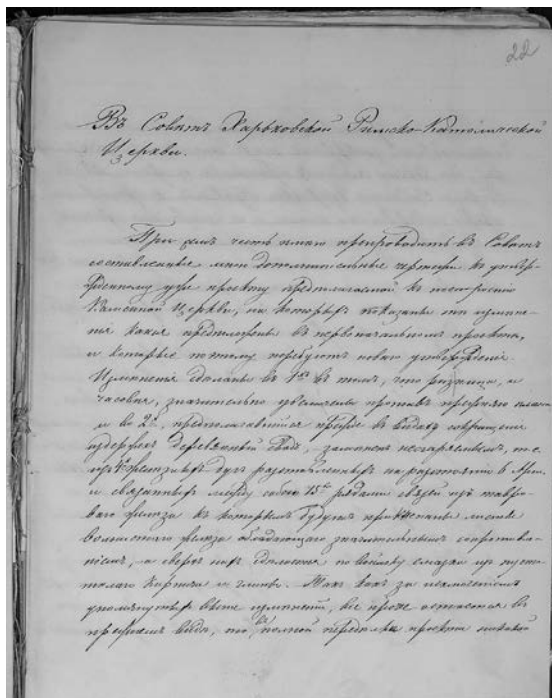 22
Въ Совѣтъ Харьковской Римско-Католической
Церкви.
При семъ честь имѣю препроводить въ Совѣтъ
составленные мною дополнительные чертежи къ утвер-
жденному уже проэкту предполагаемой къ построенію
Каменной Церкви, на которыхъ показаны тѣ измѣне-
нія какія предположены въ первоначальномъ проэктѣ,
и которые потому требуютъ новаго утвержденія.
Измѣненія сдѣланы въ 1хъ въ томъ, что ризница, и
часовня, значительно увеличены противъ прежняго плана
и во 2хъ, предполагавшійся прежде въ видахъ сокращенія
издержекъ деревянный сводъ, замѣненъ несгораемымъ, т. е.
изъ желѣзныхъ дугъ разставленныхъ на разстояніи 6 Арш.
и связанныхъ между собою 15ю рядами связей изъ тавро-
ваго желѣза къ которымъ будутъ листы
волнистаго желѣза обладающаго значительнымъ сопротивле-
ніемъ, а сверхъ ихъ сдѣлается по войлоку смазка изъ пусто-
тѣлаго кирпича и глины. Такъ какъ за исключеніемъ
упомянутыхъ выше измѣненій, все проче остается въ
прежнемъ видѣ, то полной передѣлки проэкта никакой